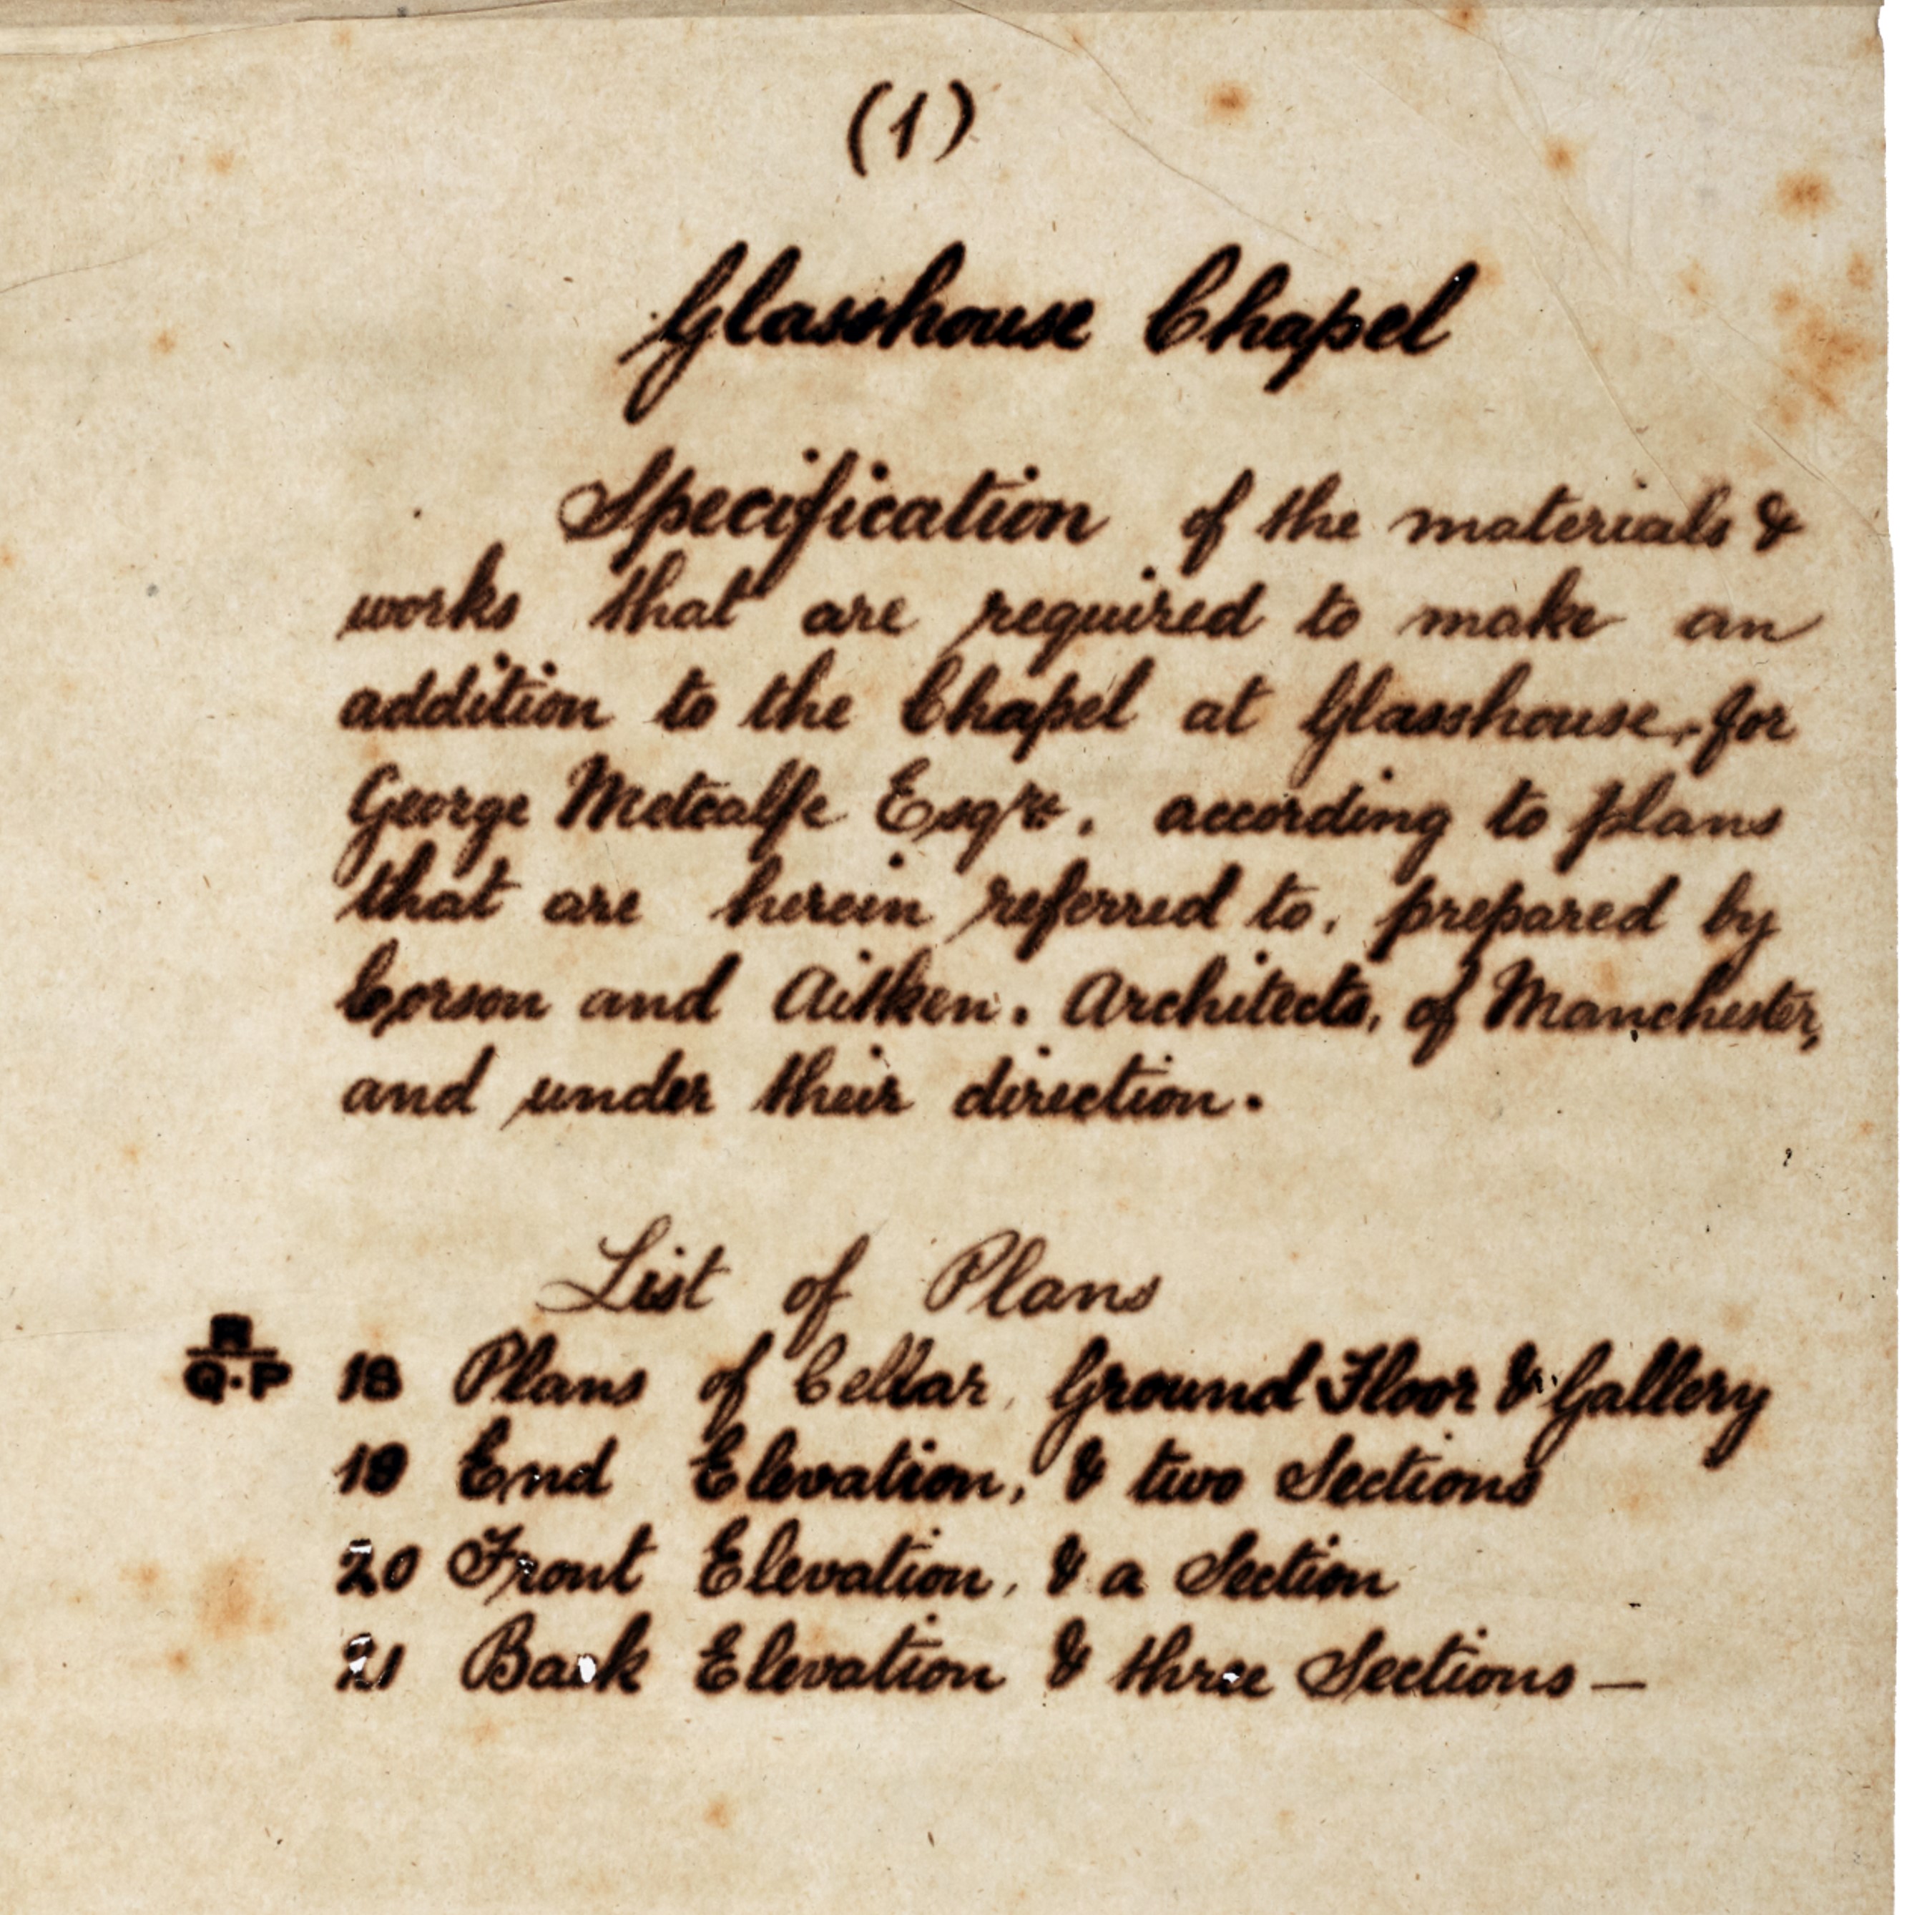 (1)
Glasshouse Chapel
Specification of the materials &
works that are required to make an
addition to the Chapel at Glasshouse, for
George Metcalfe Esqre. according to plans
that are herein referred to, prepared by
Corson and Aitken. Architects, of Manchester,
and under their direction.
List of Plans
Q.P 18 Plans of Cellar, Ground Floor & Gallery
19 End Elevation, & two Sections
20 Front Elevation, & a Section
21 Back Elevation & three Sections —